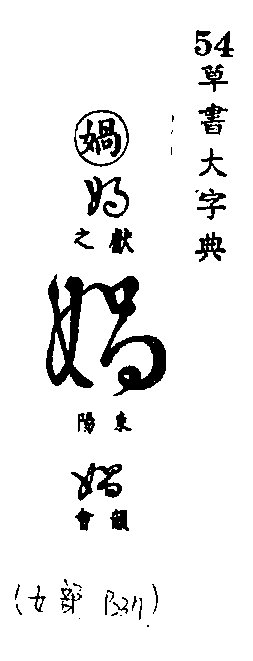 54
草書大字典
媧
媧
獻之
媧
東陽
媧
韻會
(女部